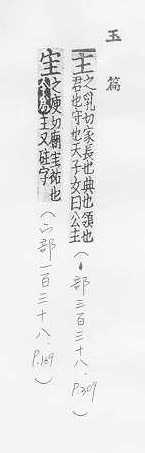 玉篇
主之乳切家長也典也領也
君也守也天子女曰公主(丶部三百三十八.P.309)
宔之庾切廟宔祏也
今為主又砫字(宀部一百三十八.P.169)